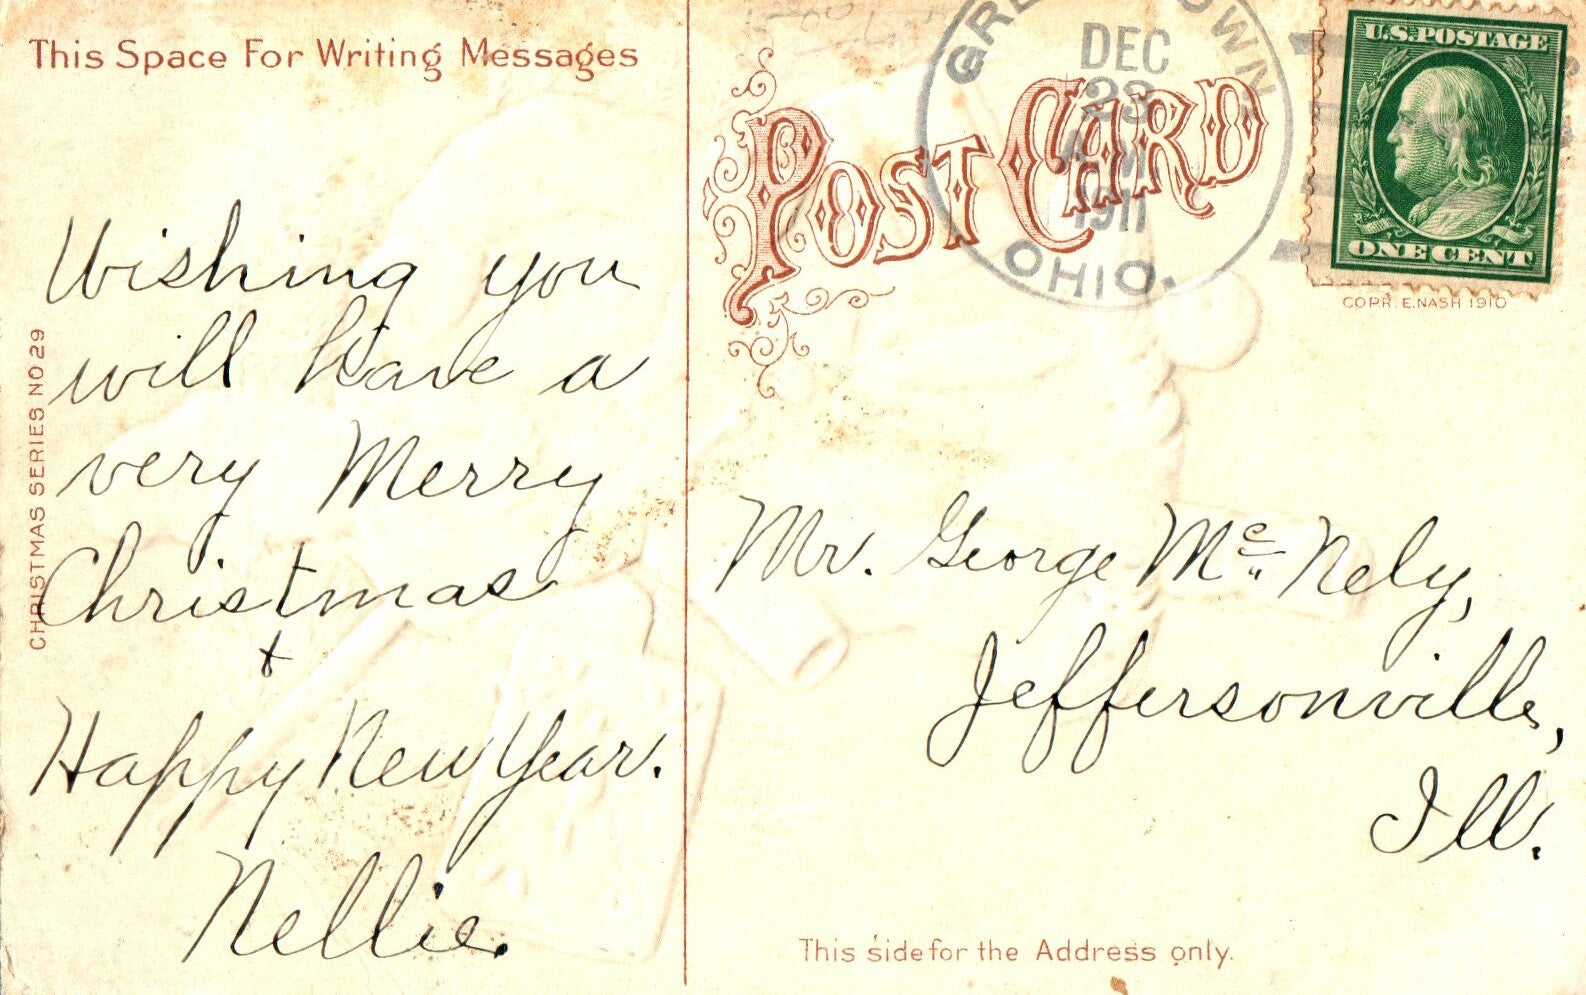 This Space For Writing Messages
Wishing you
will have a
very Merry
Christmas
+
Happy New Year.
Nellie.
CHRISTMAS SERIES NO 29
POST CARD
DEC
23
1911
OHIO.
U.S. POSTAGE
ONE CENT
COPR. E. NASH 1910
Mr. George Mc Nely,
Jeffersonville,
Ill.
This side for the Address only.